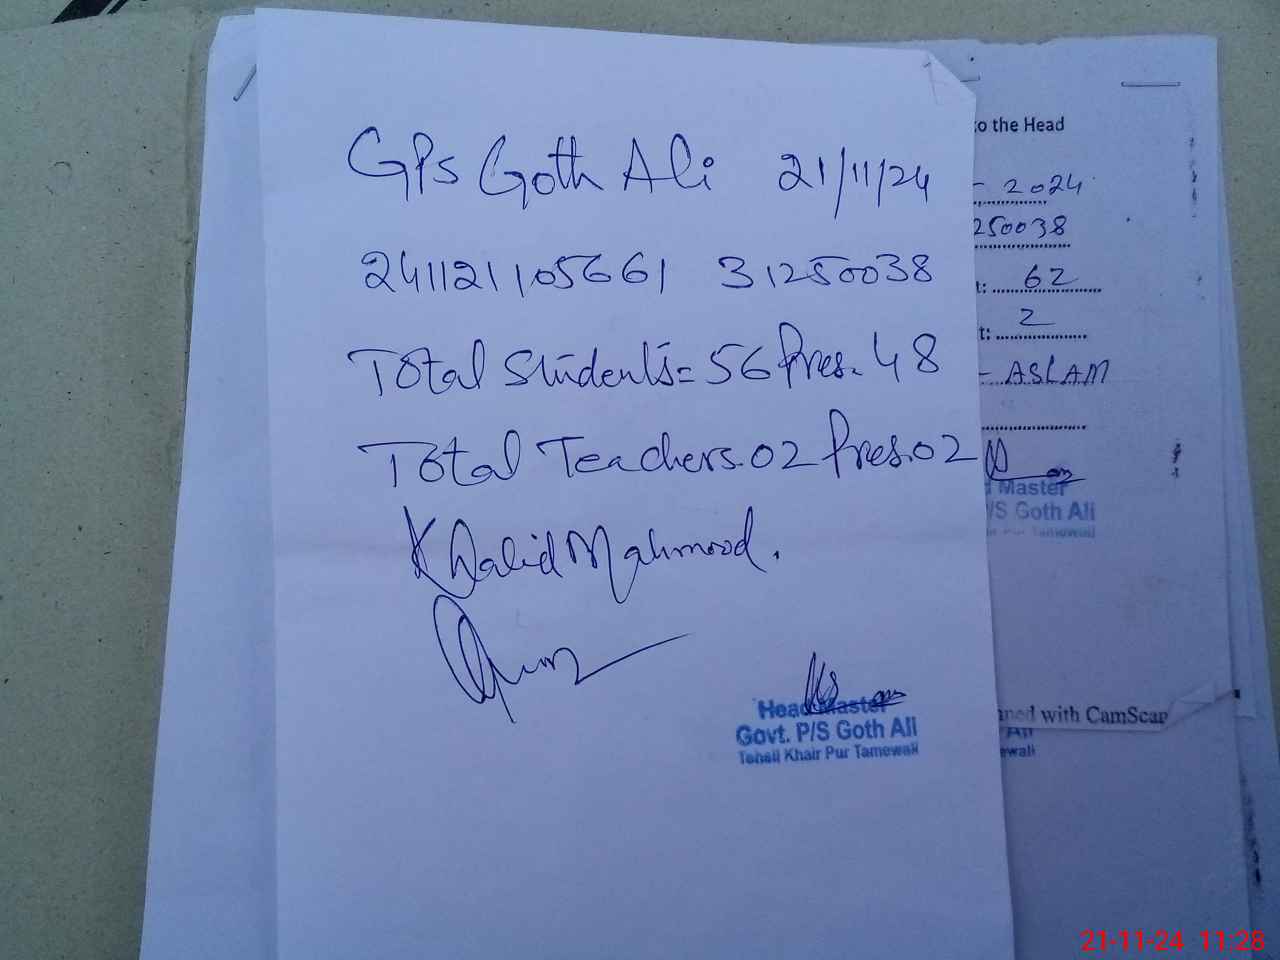 GPs Goth Ali 21/11/24
241121105661 31250038
Total Students= 56 Pres. 48
Total Teachers. 02 Pres. 02
Khalid Mahmood.
Head Master
Govt. P/S Goth Ali
Tehsil Khair Pur Tamewali
to the Head
- 2024
250038
t: 62
t: 2
- ASLAM
d Master
/S Goth Ali
Pur Tamewali
nned with CamScan
Ali
ewali
21-11-24 11:28